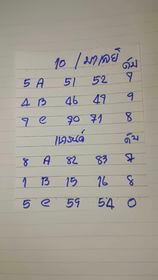 10 / มาเลย์ ดับ
5 A 51 52 9
4 B 46 49 9
9 C 90 71 8
เทรนด์ ดับ
8 A 82 83 7
1 B 15 16 8
5 C 59 54 0